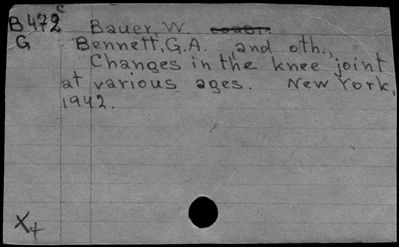 B472c Bauer, W.
G Bennett, G.A. and oth.,
Changes in the knee joint
at various ages. New York,
1942.
X+